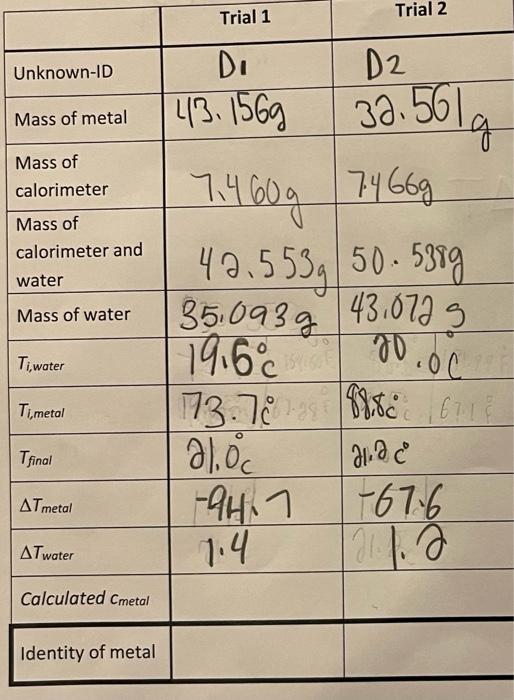 Trial 1 Trial 2
Unknown-ID D1 D2
Mass of metal 43.156g 32.561g
Mass of
calorimeter 7.460g 7.466g
Mass of
calorimeter and
water 42.553g 50.538g
Mass of water 35.093g 43.072g
Ti,water 19.6°C 20.0°C
Ti,metal 73.7°C 88.8°C
Tfinal 21.0°C 21.2C°
ΔTmetal -94.7 -67.6
ΔTwater 1.4 1.2
Calculated Cmetal
Identity of metal